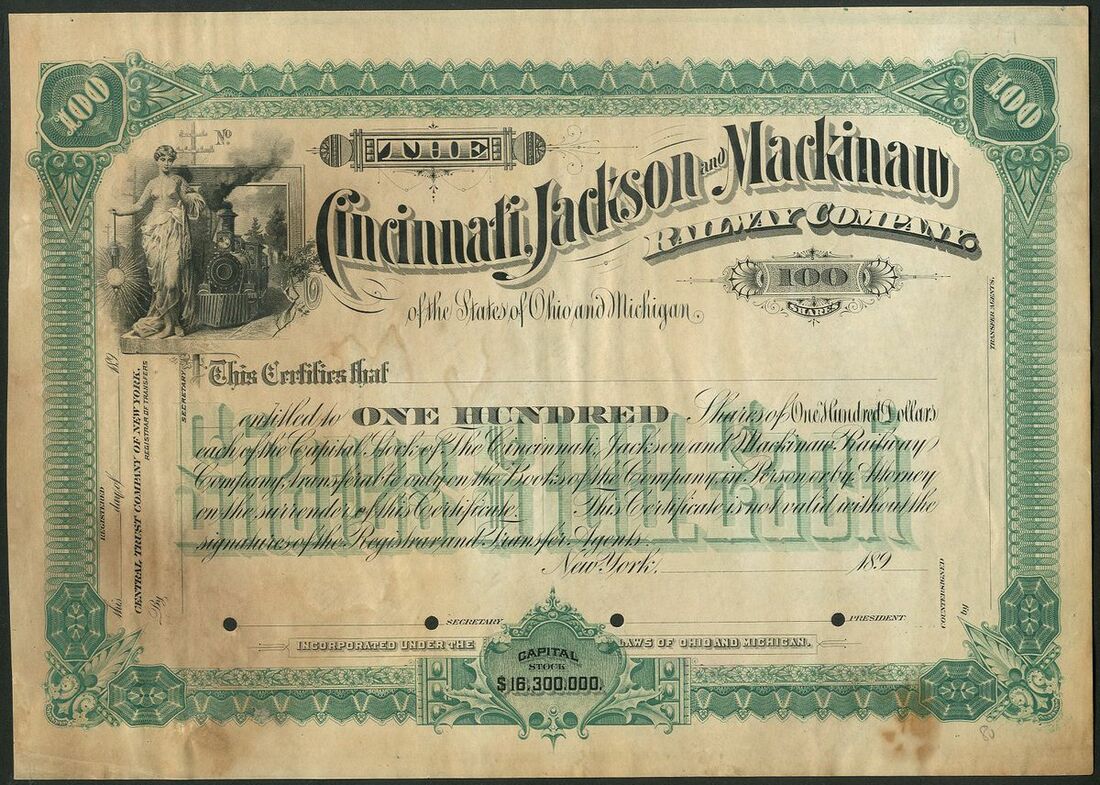 100
100
No
THE
Cincinnati, Jackson and Mackinaw
RAILWAY COMPANY.
100
SHARES
of the States of Ohio and Michigan
This Certifies that
entitled to ONE HUNDRED Shares of One Hundred Dollars
each of the Capital Stock of The Cincinnati, Jackson and Mackinaw Railway
Company, transferable only on the Books of the Company, in Person or by Attorney
on the surrender of this Certificate. This Certificate is not valid without the
signatures of the Registrar and Transfer Agents.
New York, 189
SECRETARY
PRESIDENT
INCORPORATED UNDER THE LAWS OF OHIO AND MICHIGAN.
CAPITAL
STOCK
$16,300,000.
REGISTERED
this day of 189
CENTRAL TRUST COMPANY OF NEW YORK.
REGISTRAR OF TRANSFERS
By
SECRETARY
COUNTERSIGNED
by
TRANSFER AGENTS.
80